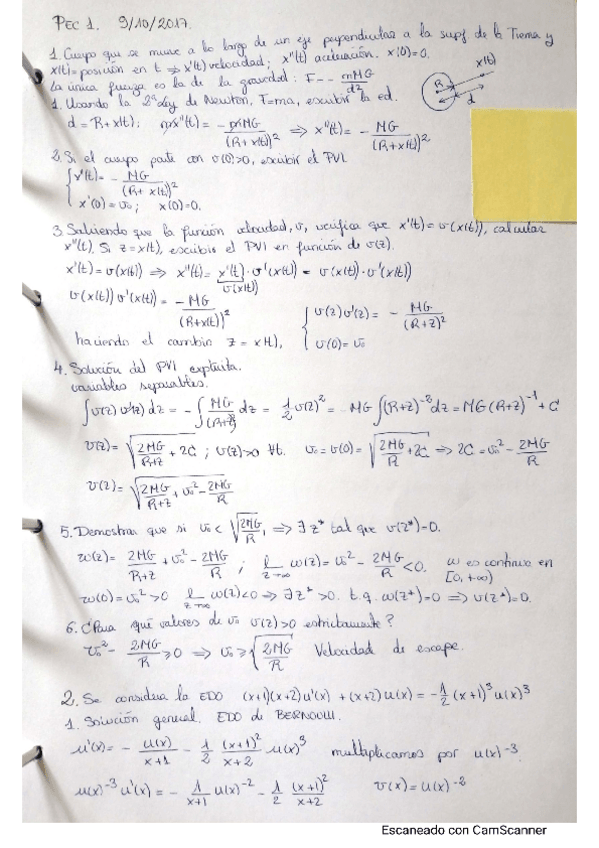 PEC 1. 9/10/2017.
1. Cuerpo que se mueve a lo largo de un eje perpendicular a la supf de la Tierra y
x(t)=posición en t ⇒ x'(t) velocidad; x''(t) aceleración. x(0)=0.
la única fuerza es la de la gravedad: F=- mMG/d²
1. Usando la 2ª Ley de Newton, F=ma, escribir la ed.
d = R+x(t); mx''(t) = - mMG/(R+x(t))² ⇒ x''(t) = - MG/(R+x(t))²
R
d
x(t)
2. Si el cuerpo parte con v(0)>0, escribir el PVI.
{ x''(t) = - MG/(R+x(t))²
x'(0) = v₀; x(0)=0.
3. Sabiendo que la función velocidad, v, verifica que x'(t) = v(x(t)), calcular
x''(t). Si z = x(t), escribir el PVI en función de v(z).
x'(t) = v(x(t)) ⇒ x''(t) = x'(t) · v'(x(t)) = v(x(t)) · v'(x(t))
v(x(t))
v(x(t)) v'(x(t)) = - MG/(R+x(t))²
haciendo el cambio z = x(t), { v(z)v'(z) = - MG/(R+z)²
v(0) = v₀
4. Solución del PVI explícita.
variables separables.
∫v(z) v'(z) dz = - ∫ MG/(R+z)² dz = ½ v(z)² = - MG ∫(R+z)⁻² dz = MG (R+z)⁻¹ + C
v(z) = √(2MG/(R+z) + 2C) ; v(z)>0 ∀t. v₀ = v(0) = √(2MG/R + 2C) ⇒ 2C = v₀² - 2MG/R
v(z) = √(2MG/(R+z) + v₀² - 2MG/R)
5. Demostrar que si v₀ < √(2MG/R), ⇒ ∃ z* tal que v(z*)=0.
w(z) = 2MG/(R+z) + v₀² - 2MG/R ; l z→∞ w(z) = v₀² - 2MG/R < 0. w es continua en
[0, +∞)
w(0) = v₀² > 0 l z→∞ w(z) < 0 ⇒ ∃ z* > 0. t.q. w(z*) = 0 ⇒ v(z*) = 0.
6. ¿Para qué valores de v₀ v(z)>0 estrictamente?
v₀² - 2MG/R ≥ 0 ⇒ v₀ ≥ √(2MG/R) Velocidad de escape.
2. Se considera la EDO (x+1)(x+2)u'(x) + (x+2)u(x) = -½ (x+1)³ u(x)³
1. Solución general. EDO de BERNOULLI.
u'(x) = - u(x)/(x+1) - ½ (x+1)²/(x+2) u(x)³ multiplicamos por u(x)⁻³.
u(x)⁻³ u'(x) = - 1/(x+1) u(x)⁻² - ½ (x+1)²/(x+2) v(x) = u(x)⁻²
Escaneado con CamScanner